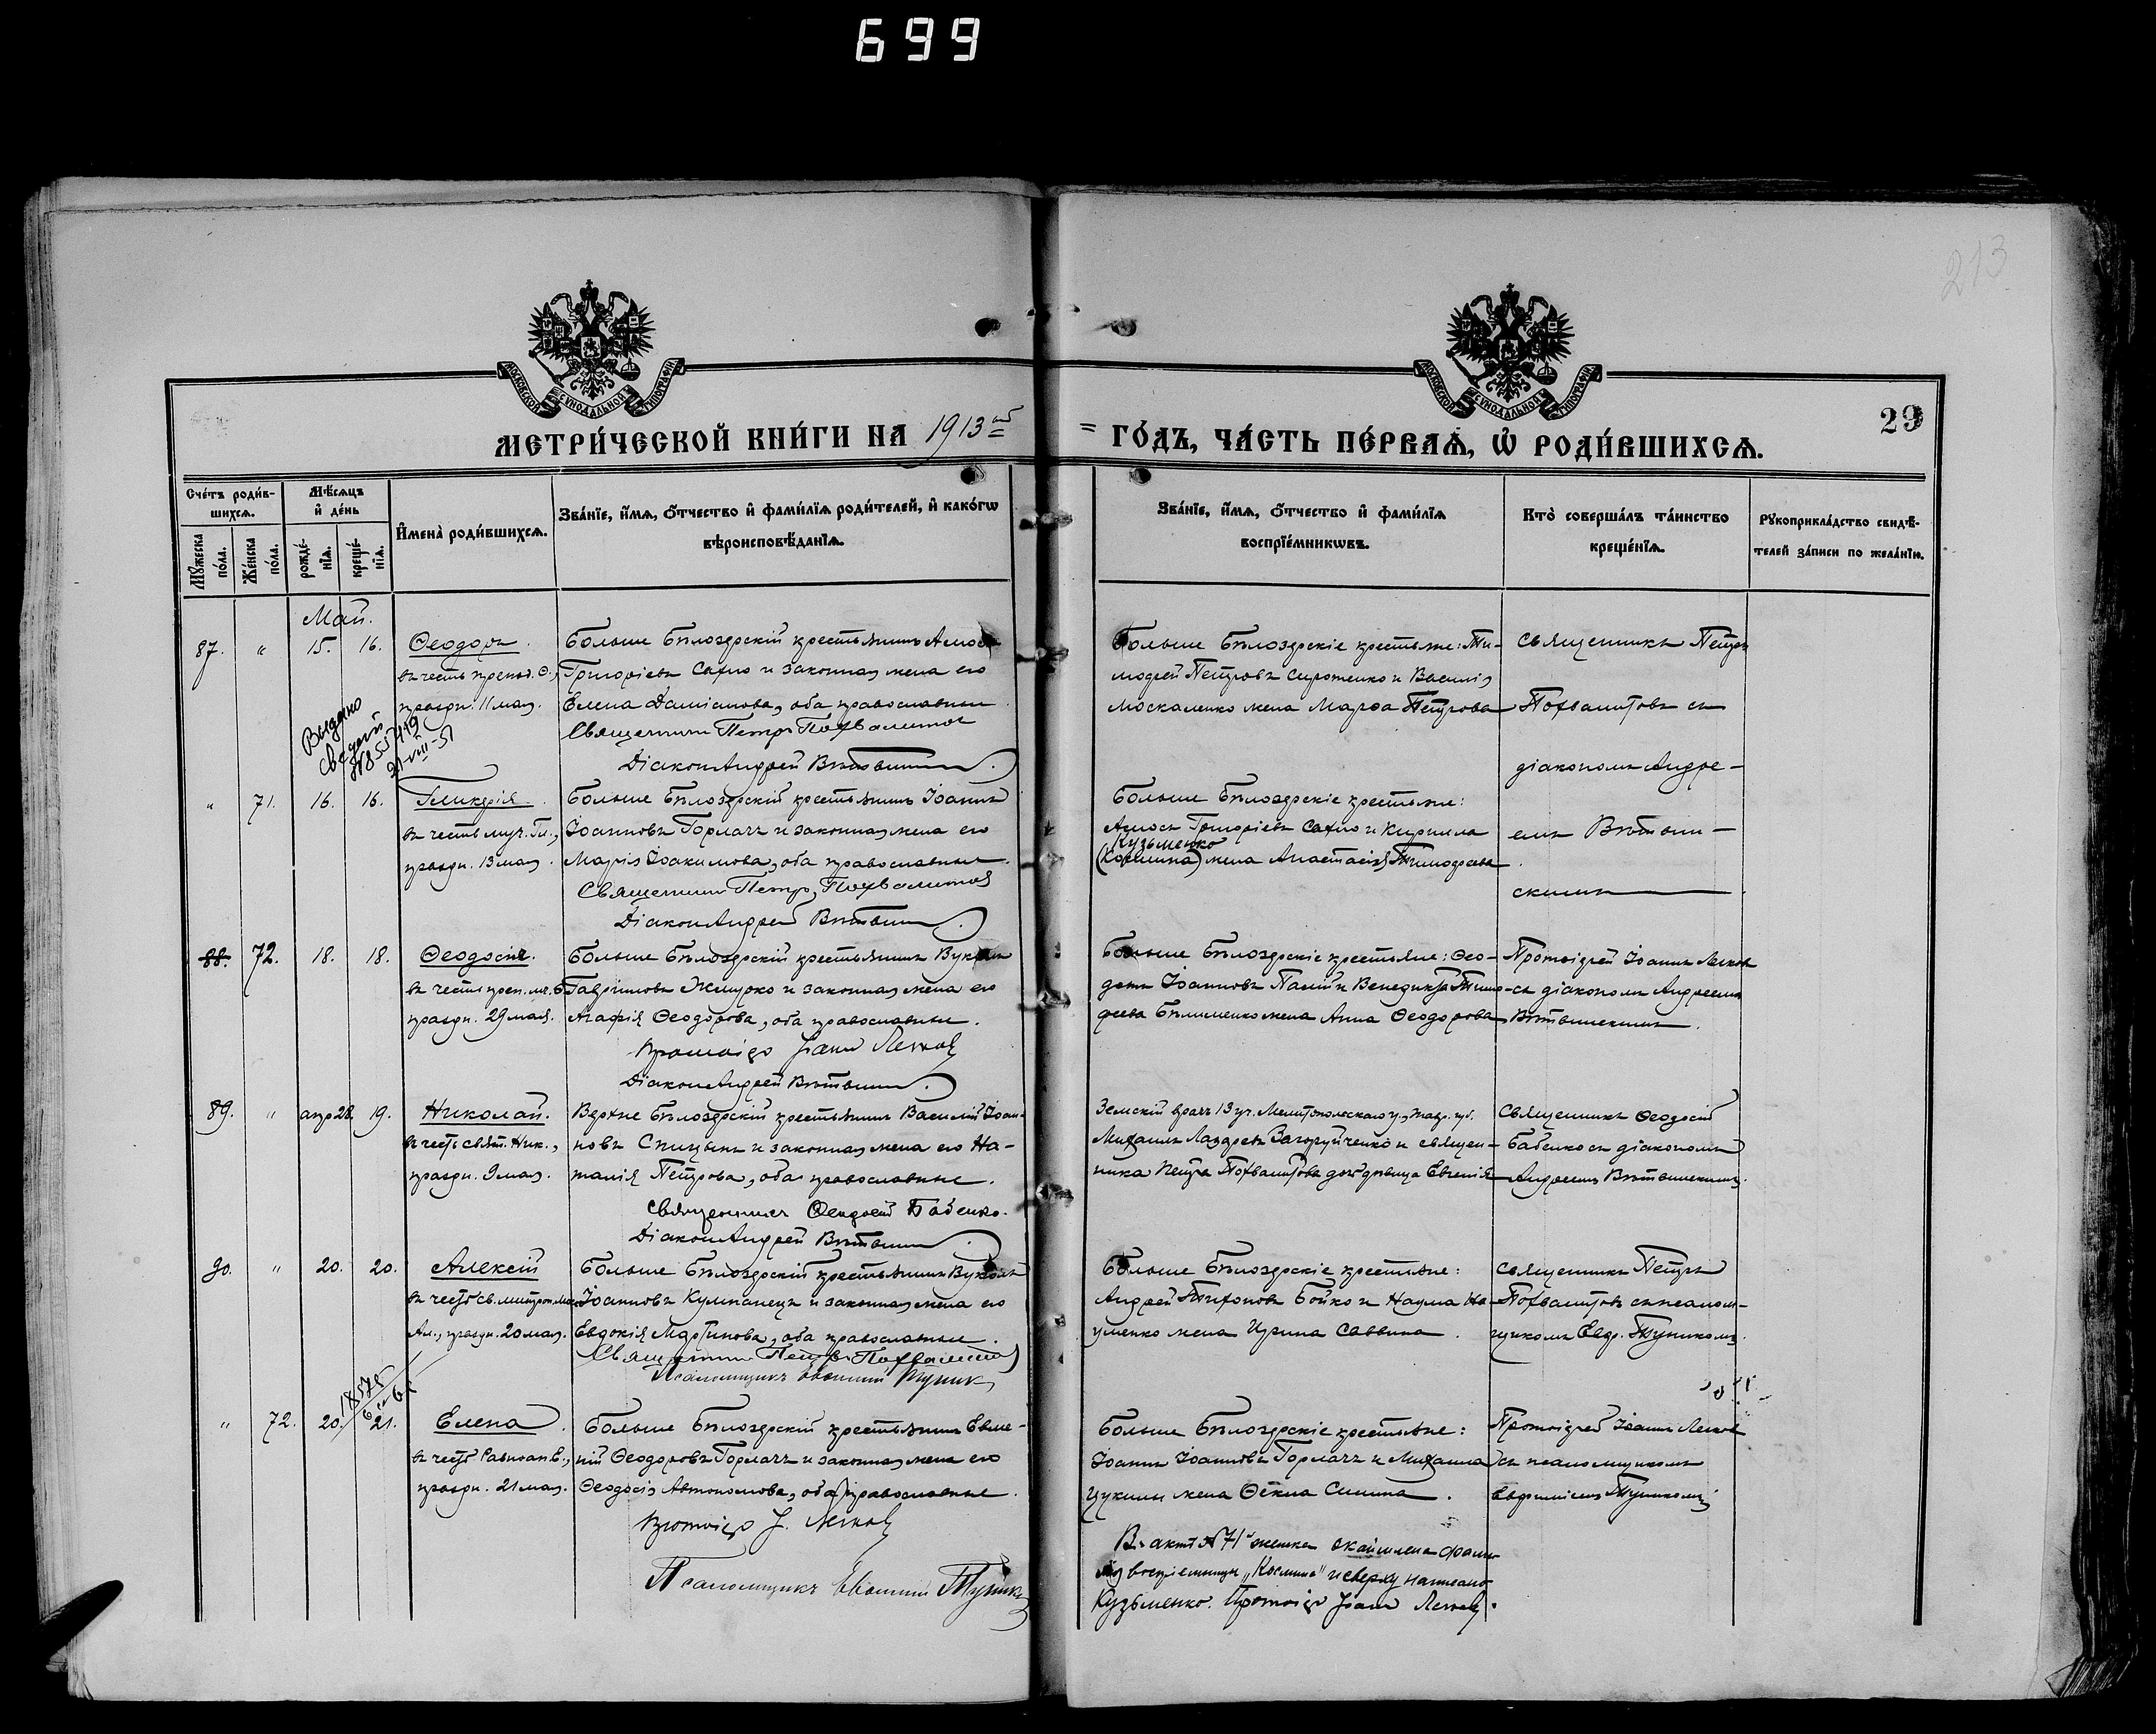 699
213
МОСКОВСКОЙ СѴНОДАЛЬНОЙ ТИПОГРАФІИ
МОСКОВСКОЙ СѴНОДАЛЬНОЙ ТИПОГРАФІИ
29
МЕТРИ́ЧЕСКОЙ КНИ́ГИ НА 1913
ГО́ДЪ, ЧА́СТЬ ПЕ́РВАѦ, Ѡ҆ РОДИ́ВШИХСѦ.
Сче́тъ роди́в-
шихсѧ.
Мѣ́сѧцъ
и҆ де́нь
Мꙋ́жеска по́ла.
Же́нска по́ла.
рожде́-
нїѧ.
креще́-
нїѧ.
И҆мена̀ роди́вшихсѧ.
Зва́нїе, и҆́мѧ, ѻ҆́тчество и҆ фами́лїѧ роди́телей, и҆ како́гѡ
вѣроисповѣ́данїѧ.
Зва́нїе, и҆́мѧ, ѻ҆́тчество и҆ фами́лїѧ
воспрїе́мникѡвъ.
Кто̀ соверша́лъ та́инство
креще́нїѧ.
Рꙋкоприкла́дство свидѣ́-
телей за́писи по жела́нїю.
Май.
87. " 15. 16. Ѳеодоръ.
въ честь препод. Ѳ.,
праздн. 11 мая.
Больше Бѣлозерскій крестьянинъ Амосъ
Григоріевъ Сахно и законная жена его
Елена Даміанова, оба православные
Священникъ Петръ Похвалитовъ
Діаконъ Андрей
Больше Бѣлозерскіе крестьяне: Ти-
моѳей Петровъ Сиротенко и Василія
Москаленко жена Марѳа Петрова
Священникъ Петръ
Похвалитовъ съ
діакономъ Андре-
Выдано
21-VIII-51
" 71. 16. 16. Гликерія.
въ честь муч. Гл.,
праздн. 13 мая.
Больше Бѣлозерскій крестьянинъ Іоаннъ
Іоанновъ Горлачъ и законная жена его
Марія Іоакимова, оба православные.
Священникъ Петръ Похвалитовъ
Діаконъ Андрей
Больше Бѣлозерскіе крестьяне:
Амосъ Григоріевъ Сахно и Кирилла
Кузьменко
(Космина) жена Анастасія Тимоѳеева
скимъ
88. 72. 18. 18. Ѳеодосія.
праздн. 29 мая.
Больше Бѣлозерскій крестьянинъ Вуколъ
Гавріиловъ Жмурко и законная жена его
Агафія Ѳеодорова, оба православные.
Протоіер Іоаннъ
Діаконъ Андрей
Больше Бѣлозерскіе крестьяне: Ѳео-
дотъ Іоанновъ Палій и Венедикта Тимо-
ѳеева Билименко жена Анна Ѳеодорова
Протоіерей Іоаннъ
съ діакономъ Андреемъ
89. " апр 28. 19. Николай.
въ честь свят. Ник.,
праздн. 9 мая.
Верхне Бѣлозерскій крестьянинъ Василій Іоан-
новъ Спицынъ и законная жена его На-
талія Петрова, оба православные.
Священникъ Ѳеодосій Бабенко.
Діаконъ Андрей
Земскій врачъ 13 уч. Мелитопольскаго у., Тавр. губ.
Михаилъ Лазаревъ Загоруйченко и священ-
ника Петра Похвалитова дочь девица Евгенія
Священникъ Ѳеодосій
Бабенко съ діакономъ
90. " 20. 20. Алексій
въ честь св. митроп. Мос.
Ал., праздн. 20 мая.
Больше Бѣлозерскій крестьянинъ Вуколъ
Іоанновъ Кулпанецъ и законная жена его
Евдокія Мартинова, оба православные.
Священникъ Петръ Похвалитовъ
Псаломщикъ Евѳимій Тупикъ
Больше Бѣлозерскіе крестьяне:
Андрей Тихоновъ Бойко и Наума На-
уменко жена Ирина Саввина.
Священникъ Петръ
Похвалитовъ съ псалом-
щикомъ Евѳ. Тупикомъ.
" 72. 20. 21. Елена.
въ честь равноап. Е.,
праздн. 21 мая.
Больше Бѣлозерскій крестьянинъ Евме-
ній Ѳеодоровъ Горлачъ и законная жена его
Ѳеодосія Автономова, оба православные.
Протоіер І.
Псаломщикъ Евѳимій Тупикъ
Больше Бѣлозерскіе крестьяне:
Іоаннъ Іоанновъ Горлачъ и Михаила
жена Ѳекла Симина.
Протоіерей Іоаннъ
съ псаломщикомъ
Евѳиміемъ Тупикомъ
Въ актѣ № 71 женск.
воспріемницы „Космина" и сверху написано
Кузьменко. Протоіер Іоаннъ